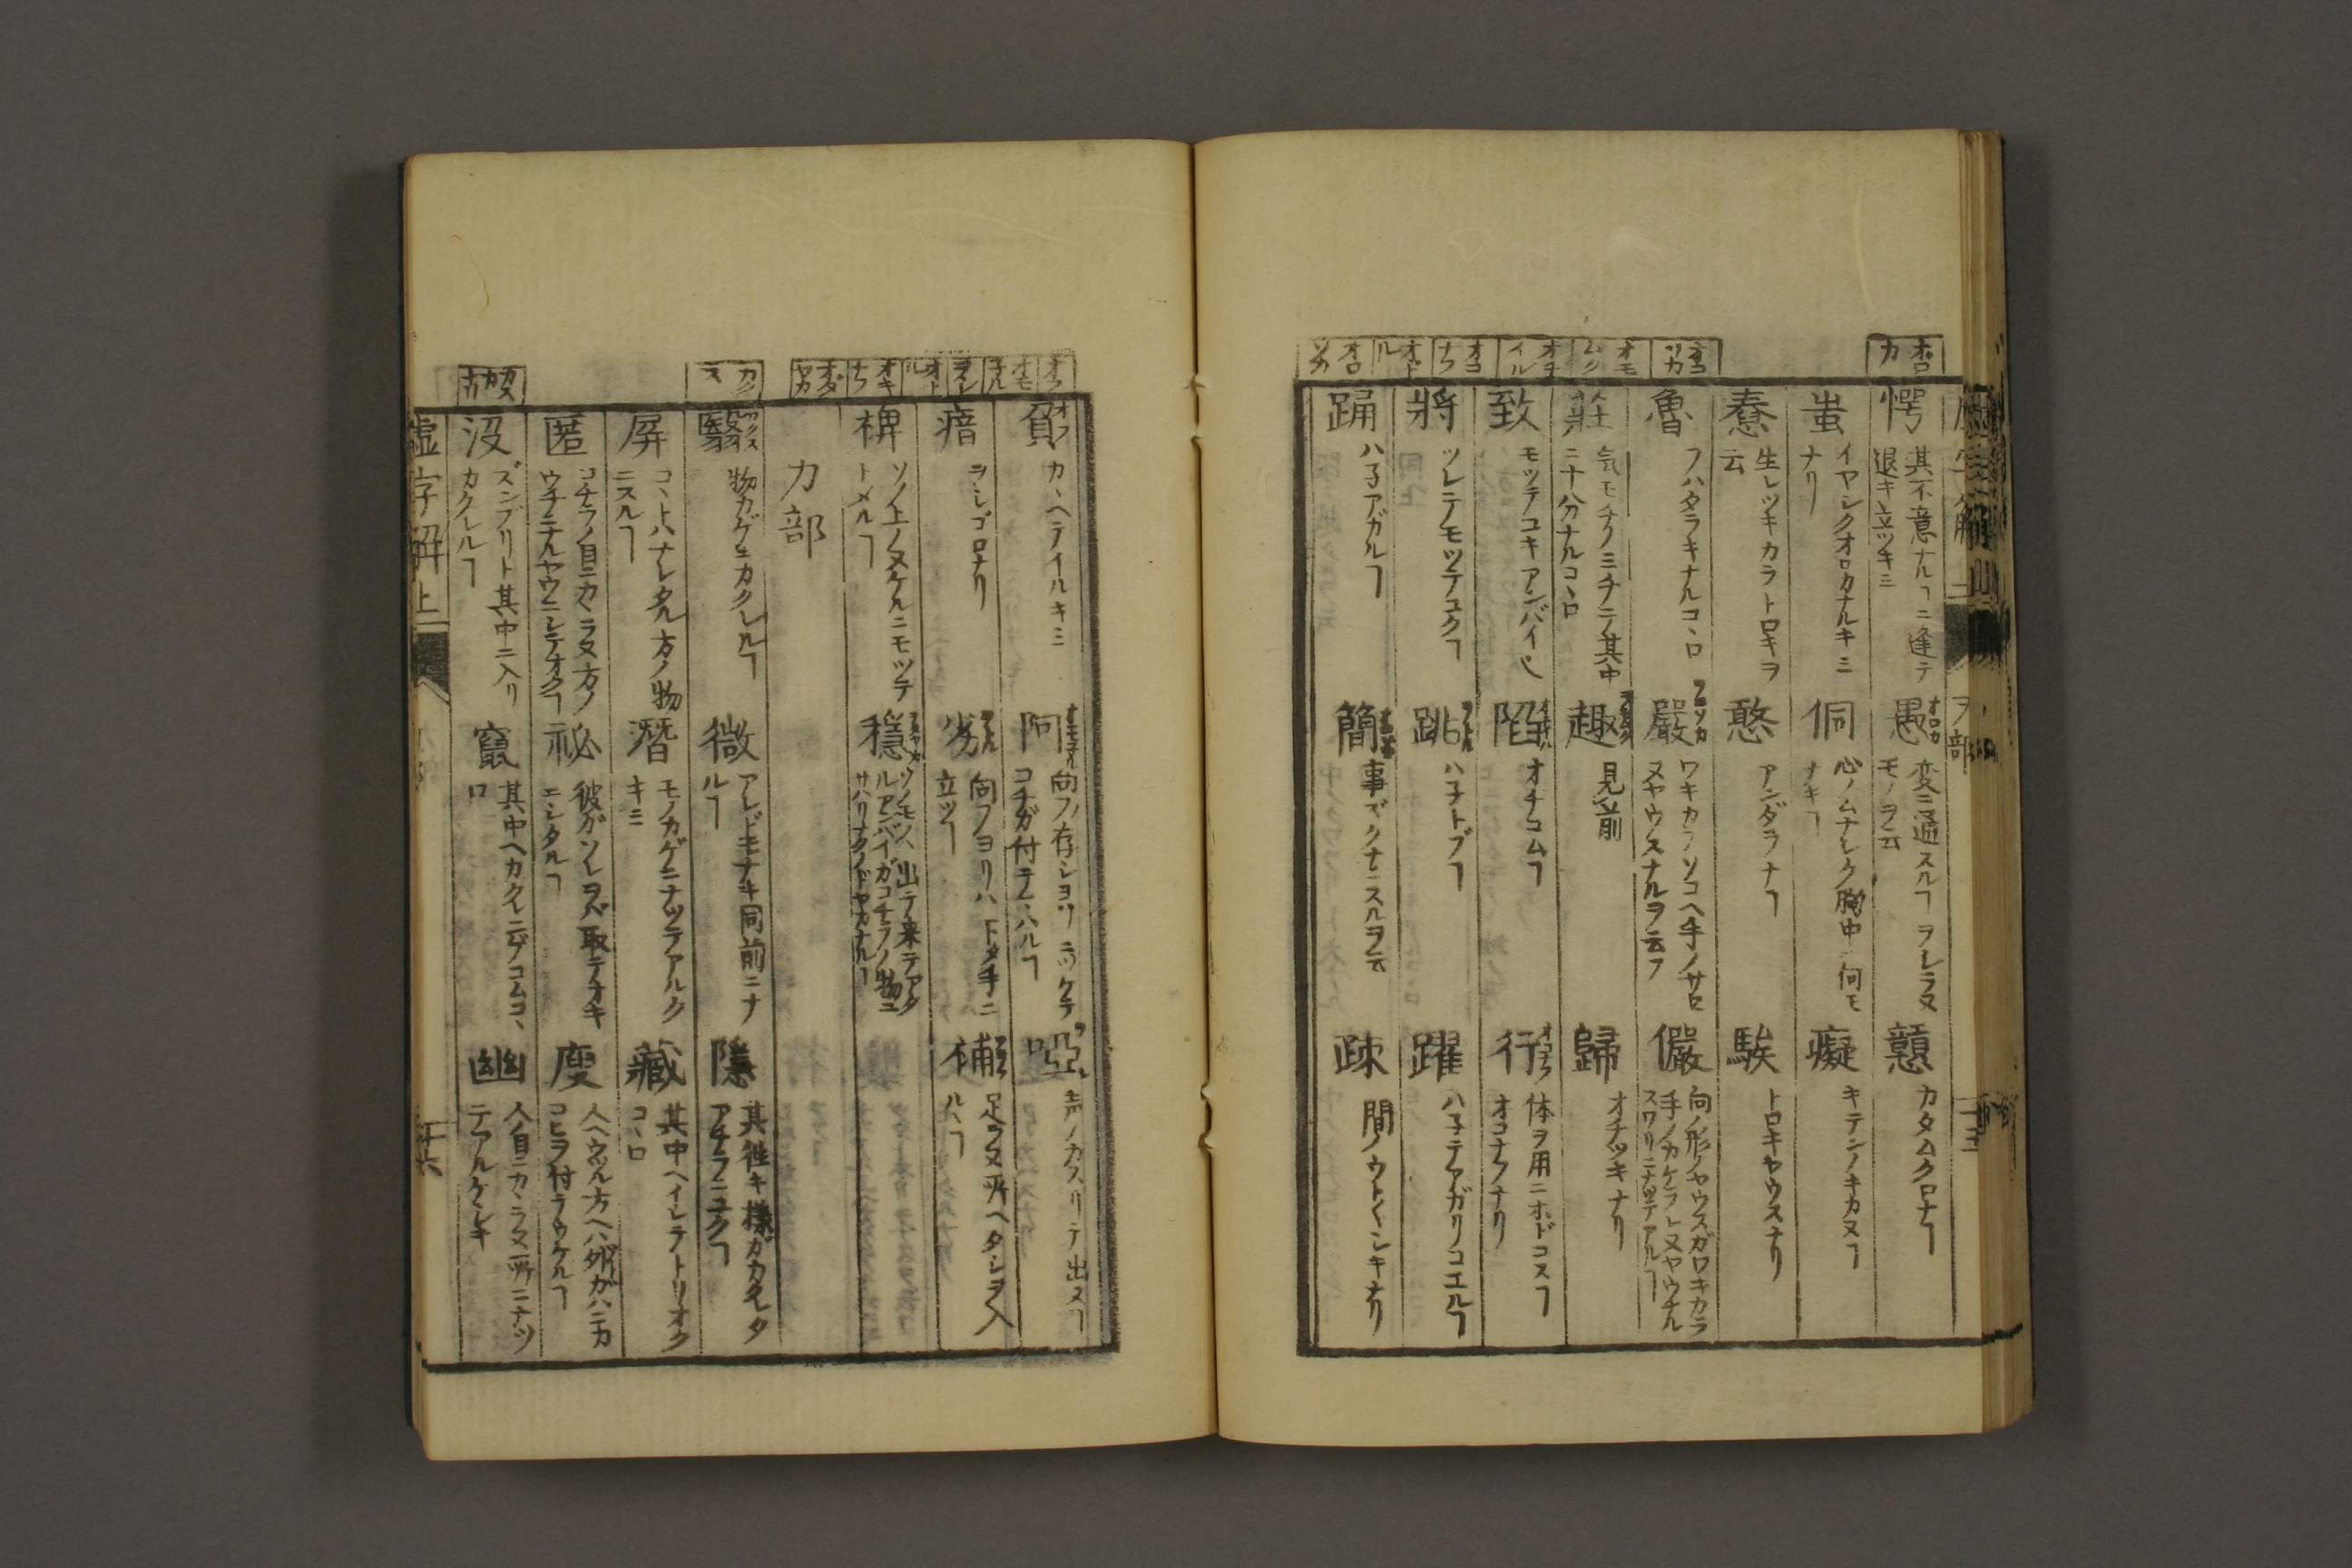 ヲ部
愕
其不意ナルヿニ逢テ
退キ立ツキミ
愚 オロカ
変ニ通スルヿヲシラヌ
モノヲ云
戇
カタムクロナヿ
蚩
イヤシクオロカナルキミ
ナリ
侗
心ノムナシク胸中ニ何モ
ナキヿ
癡
キテンノキカヌヿ
惷
生レツキカラトロキヲ
云
憨
アンダラナヿ
騃
トロキヤウスナリ
魯
フハタラキナルコヽロ
嚴
ワキカラソコヘ手ノサセ
ヌヤウスナルヲ云フ
儼
向ノ形ノヤウスガワキカラ
手ノカケラレヌヤウナル
スワリニナツテアルヿ
莊
気モチノミチテ其中
ニ十分ナルコヽロ
趣
見前
歸
オチツキナリ
致
モツテコキアンバイ也
陷
オチコムヿ
行 オコナフ
体ヲ用ニホドコスヿ
オコナフナリ
將
ツレテモツテユクヿ
跳
ハ子トブヿ
躍
ハ子テアガリコエルヿ
踊
ハ子アガルヿ
簡
事ズクナニスルヲ云
疎
間ノウトウトシキナリ
負 オフ
カヽヘテイルキミ
阿
向フノ存シヨリニツケテ
コチガ付テマハルヿ
啞
声ノカスリテ出ヌヿ
瘖
ヲシゴロナリ
劣
向フノヨリハ下タ手ニ
立ツヿ
補
足ラヌ所ヘタシヲ入
ルヽヿ
裨
ソノ上ノヌケルニモツテ
トメルヿ
穩
ソノモノヽ出テ来テアタ
ルアンバイガコチラノ物ニ
サハリナクノドヤカナルヿ
カ部
翳 カクス
物カゲエカクレルヿ
微
アレドモナキ同前ニナ
ルヿ
隱
其徃キ様ガカクレタ
アチラニユクヿ
屏
コヽトハナレタル方ノ物
ニスルヿ
潛
モノカゲニナツテアルク
キミ
藏
其中ヘイレテトリオク
コヽロ
匿
コチラノ目ニカヽラヌ方ノ
ウチニナルヤウニシテオクヿ
祕
彼ガソレヲバ取テオキ
ニシタルヿ
廋
人ヘウツル方ヘハ外ガハニカ
コヒヲ付テウケルヿ
沒
ズンブリト其中ニ入リ
カクレルヿ
竄
其中ヘカクレニゲコムコヽ
ロ
幽
人目ニカヽラヌ所ニナツ
テアルケシキ
虚字解上
廿六